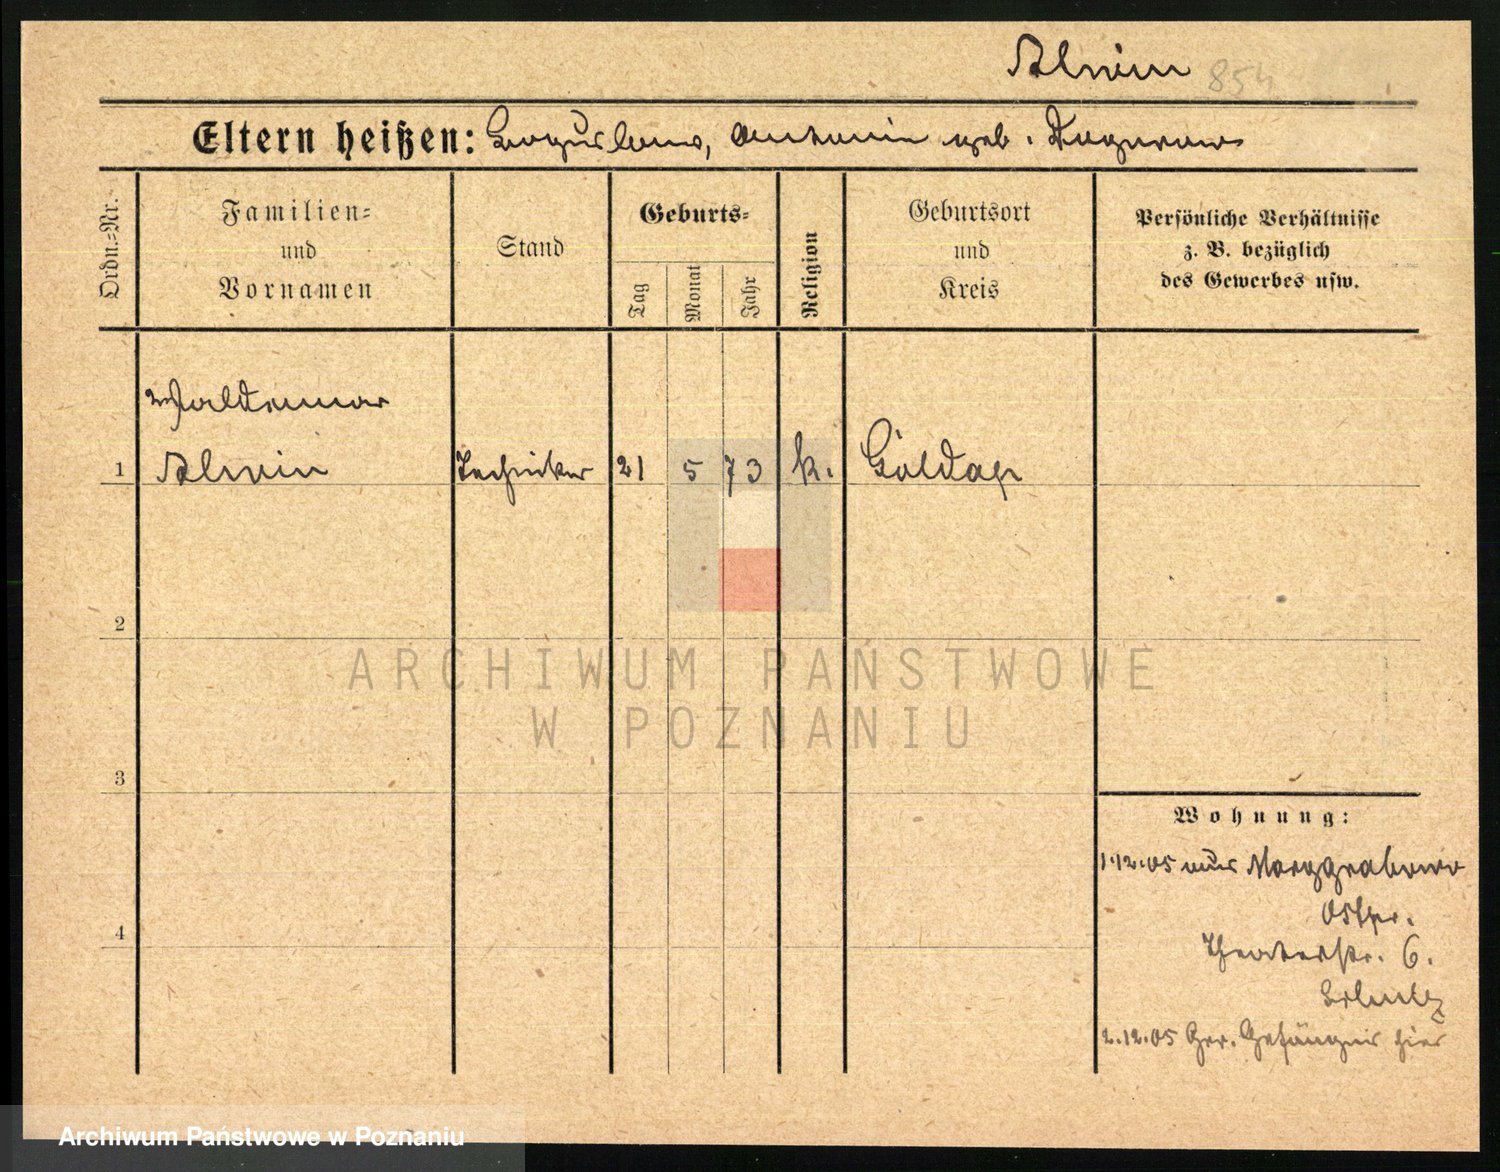 Alwin 854
Eltern heißen: Boguslaw, Antonie geb.
Ordn.=Nr.
Familien=
und
Vornamen
Stand
Geburts=
Tag
Monat
Jahr
Religion
Geburtsort
und
Kreis
Persönliche Verhältnisse
z. B. bezüglich
des Gewerbes usw.
Waldemar
1 Alwin Techniker 21 5 73 k. Goldap
2
ARCHIWUM PAŃSTWOWE
W POZNANIU
3
Wohnung:
1.12.05 aus Marggrabowa
Ostpr.
4
Theaterstr. 6.
2.12.05 Ger. Gefängnis hier
Archiwum Państwowe w Poznaniu